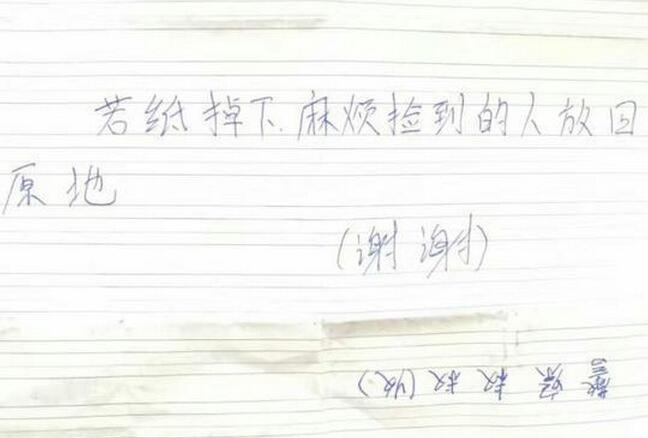 若纸掉下.麻烦捡到的人放回
原地
(谢谢)
警察叔叔(收)